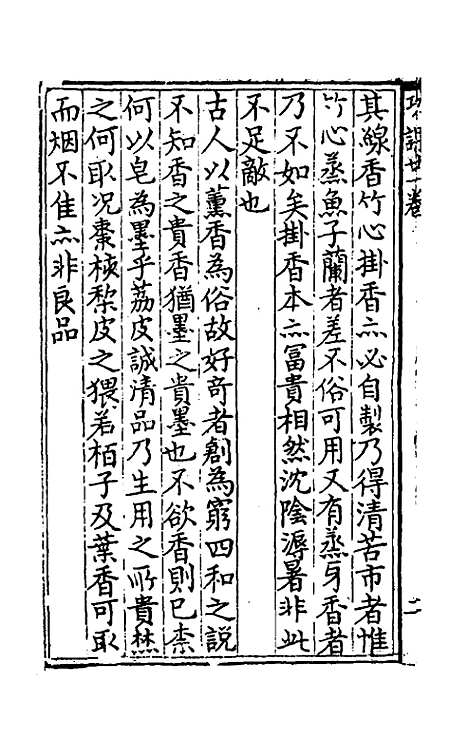 其線香竹心掛香亦必自製乃得清苦市者惟
竹心蒸魚子蘭者差不俗可用又有蒸牙香者
乃不如矣掛香本亦富貴相然沈陰溽暑非此
不足敵也
古人以薰香為俗故好竒者創為窮四和之說
不知香之貴香猶墨之貴墨也不欲香則已柰
何以皂為墨乎荔皮誠清品乃生用之所貴焚
之何取况棗核梨皮之猥若栢子及葉香可取
而烟不隹亦非良品